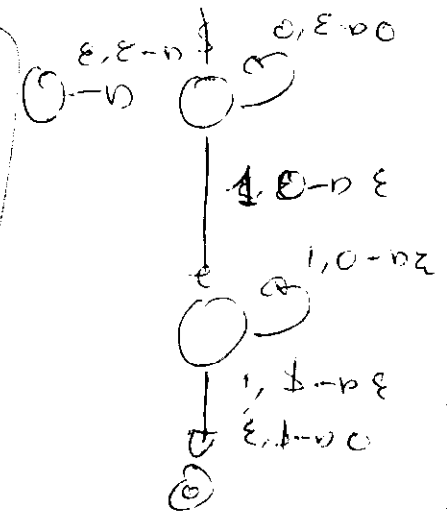 ε, ε → $
0, ε → 0
1, 0 → ε
1, 0 → ε
1, $ → ε
ε, $ → 0